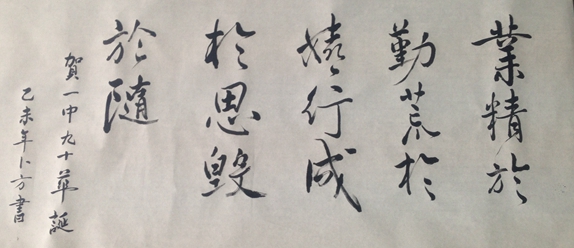 業精於
勤荒於
嬉行成
於思毀
於隨
賀一中九十華誕
己未年仁方書